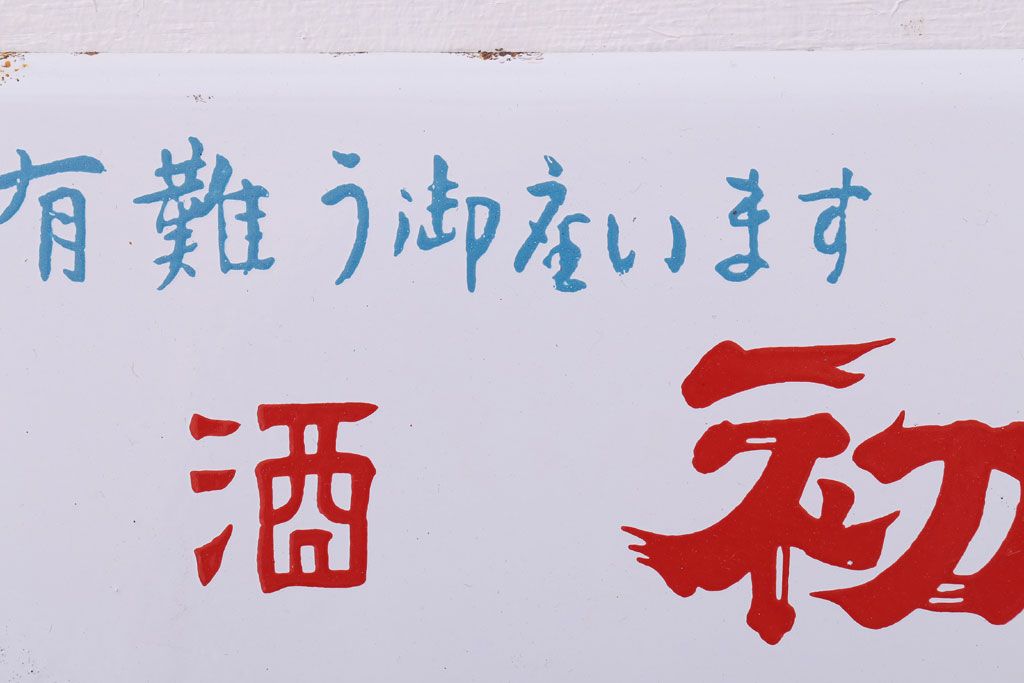 有難う御座います
酒 初